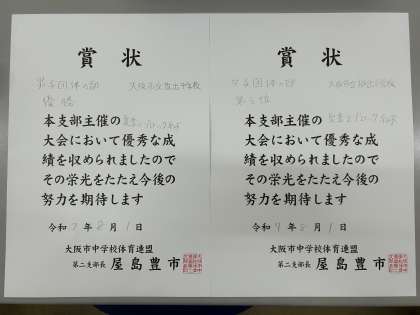 賞状
男子団体の部
大阪市立豊出中学校
優勝
本支部主催の
大会において優秀な成
績を収められましたので
その栄光をたたえ今後の
努力を期待します
令和7年8月1日
大阪市中学校体育連盟
第二支部長 屋島豊市
賞状
女子団体の部
第3位
本支部主催の
大会において優秀な成
績を収められましたので
その栄光をたたえ今後の
努力を期待します
令和7年8月1日
大阪市中学校体育連盟
第二支部長 屋島豊市